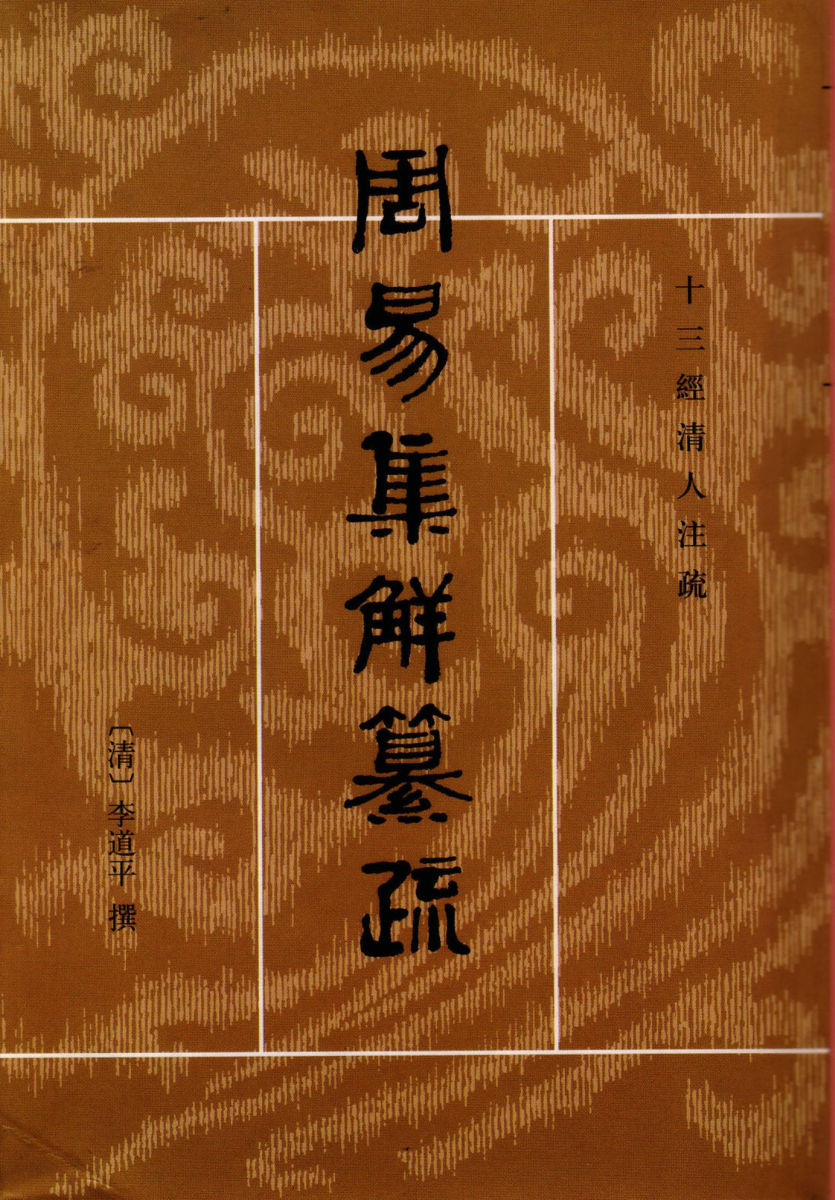 十三經清人注疏
周易集解纂疏
〔清〕李道平 撰